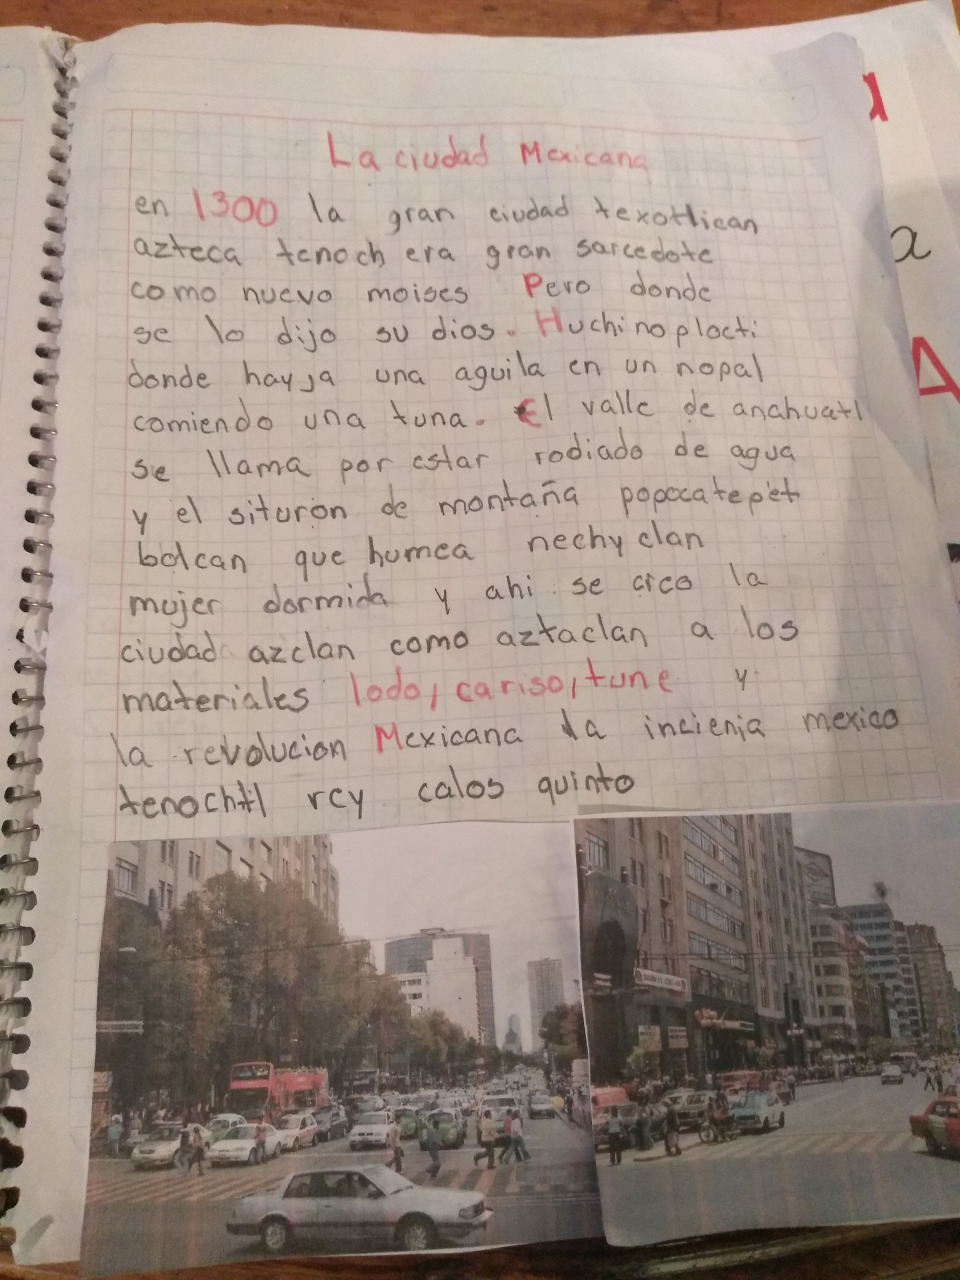 La ciudad Mexicana
en 1300 la gran ciudad texotlican
azteca tenoch era gran sarcedote
como nuevo moises Pero donde
se lo dijo su dios. Huchinoplocti
donde hayja una aguila en un nopal
comiendo una tuna. El valle de anahuatl
se llama por estar rodiado de agua
y el situron de montaña popocatepet
bolcan que humea nechyclan
mujer dormida y ahi se creo la
ciudad azclan como aztaclan a los
materiales lodo, cariso, tune y
la revolucion Mexicana la incienja mexico
tenochtl rey calos quinto
a
A